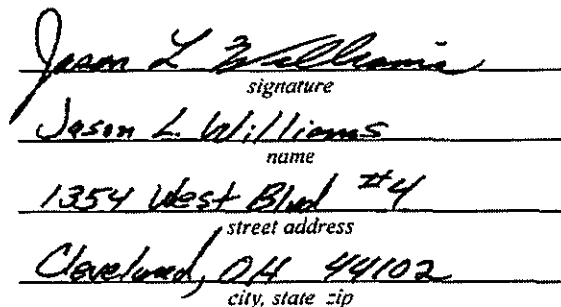 Jason L Williams
signature
Jason L. Williams
name
1354 West Blvd #4
street address
Cleveland, OH 44102
city, state zip